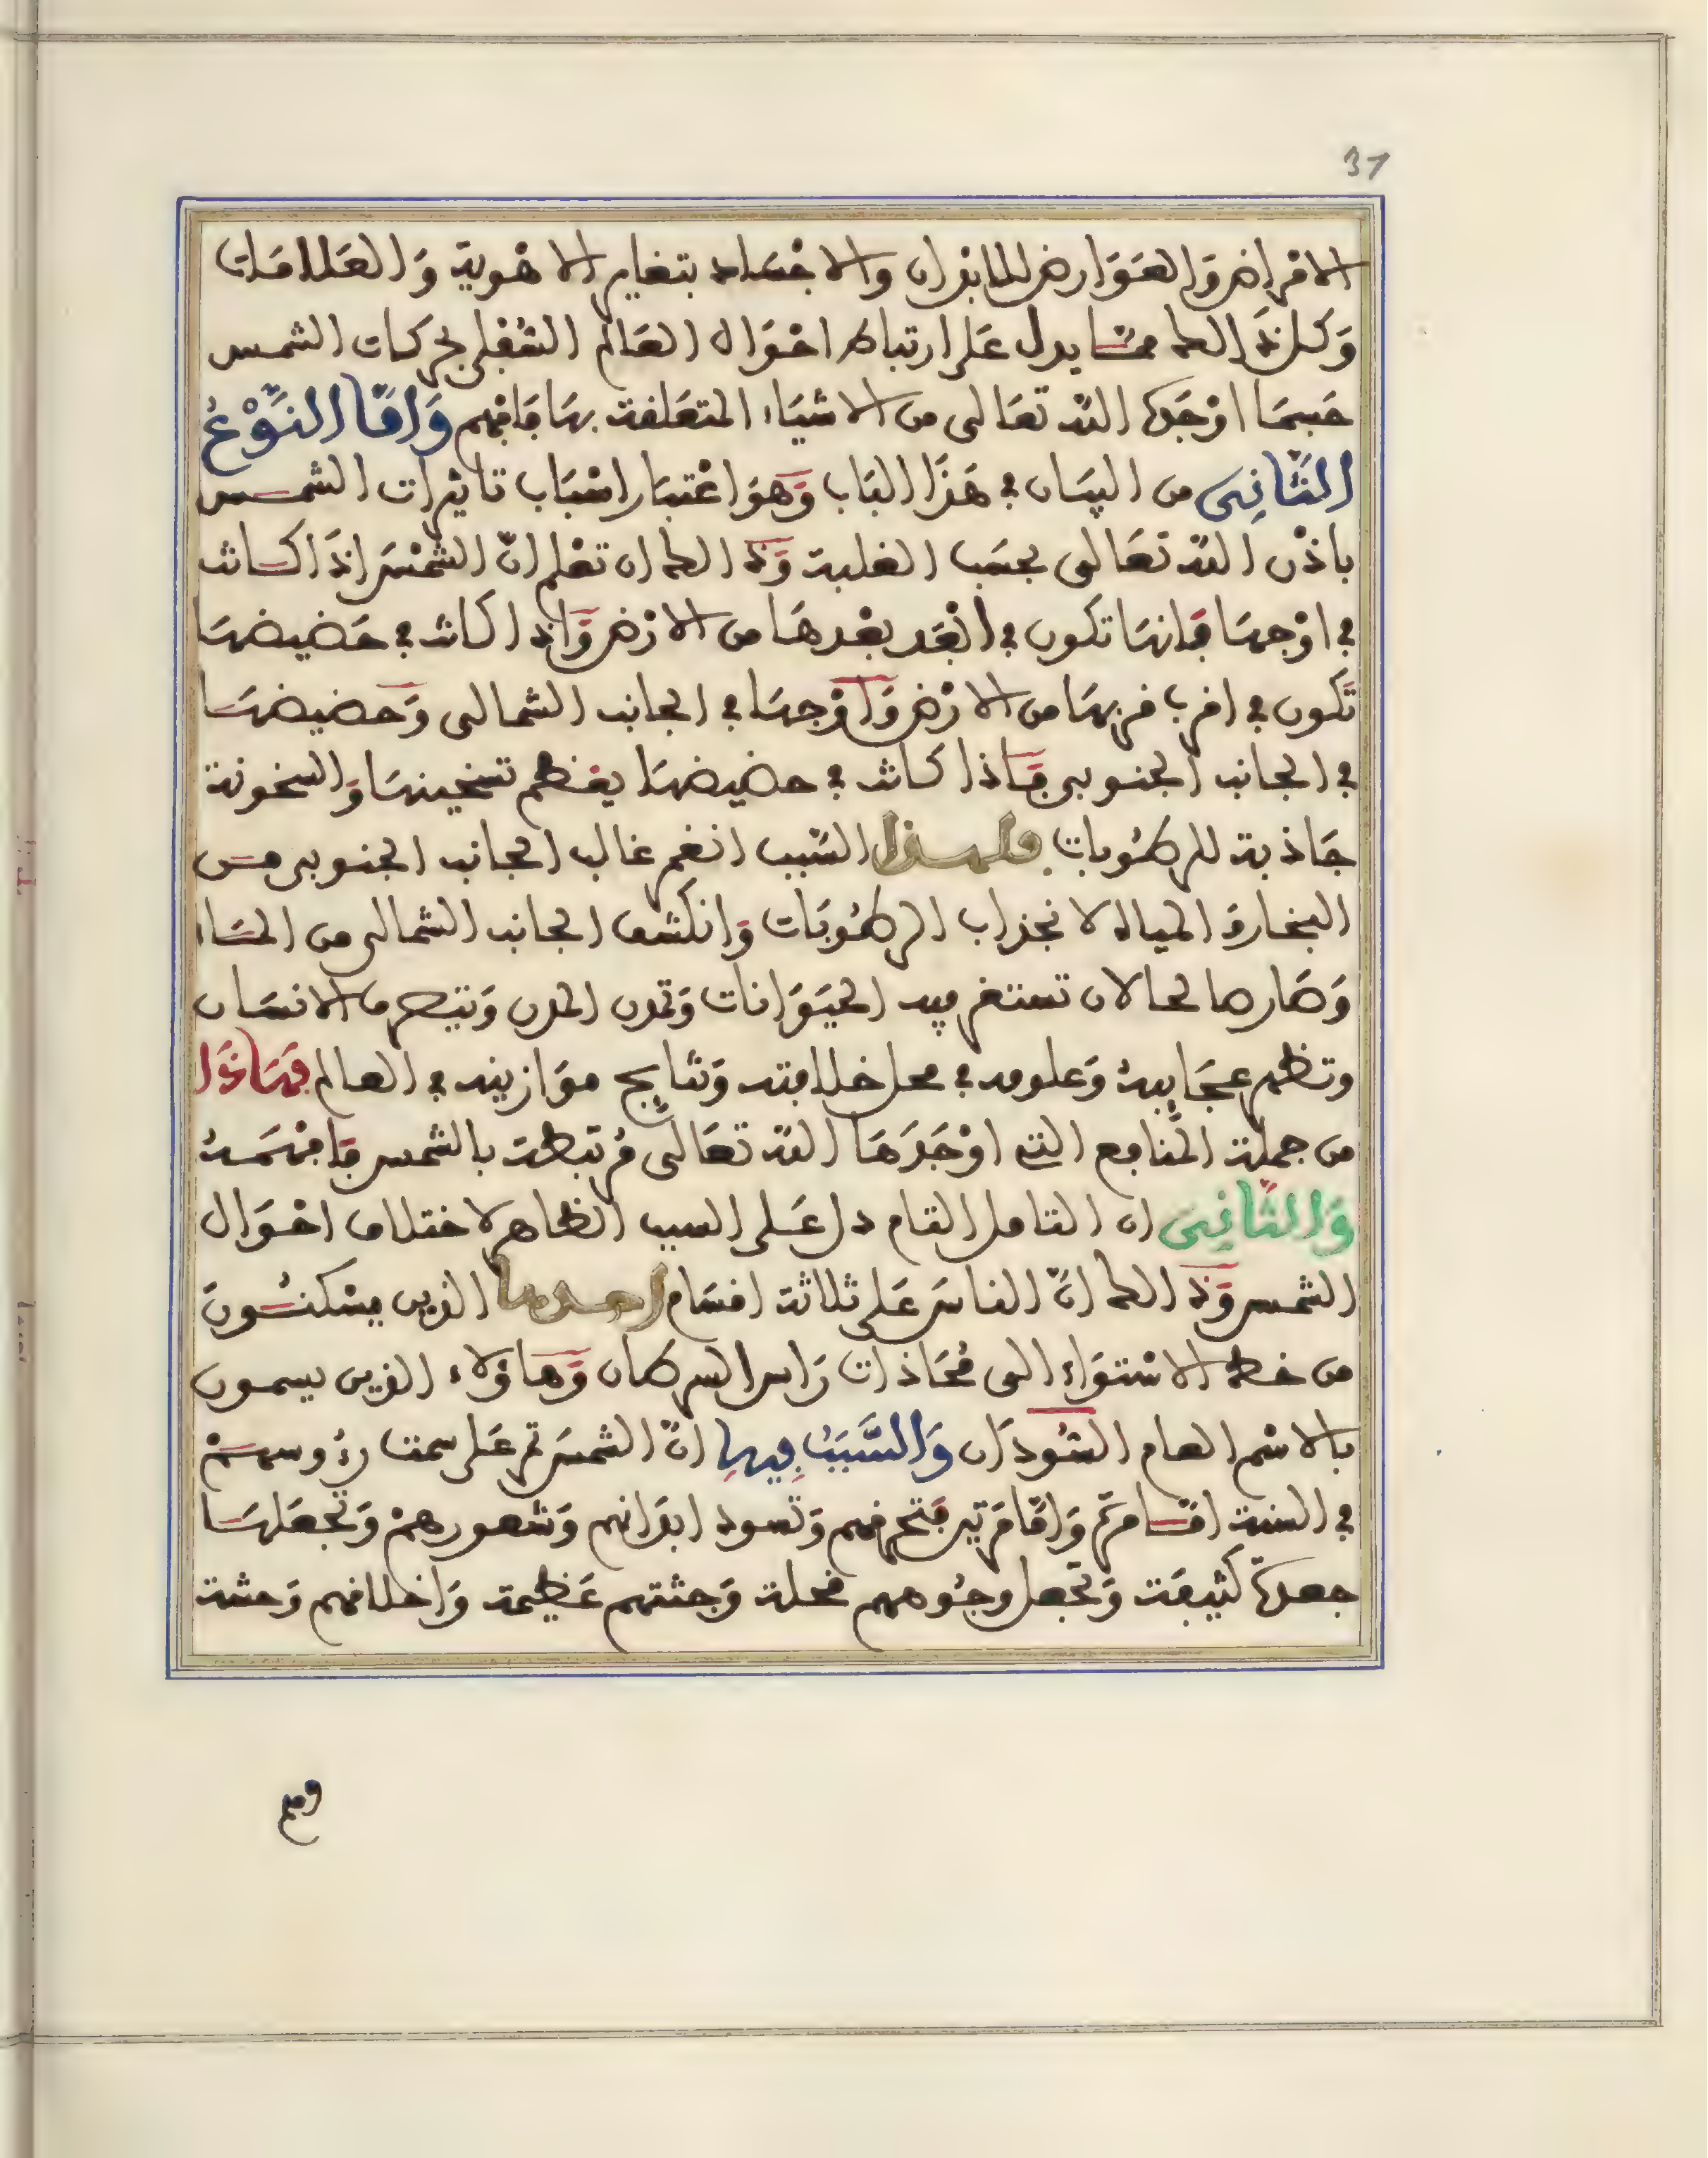 31
الامراض والعَوَارض للابدان والاجْسَاد بتغاير الاهْوية وَالعَلامَات
وَكل ذَالك ممّا يدل عَلى ارتباط احْوَال العَالم السُّفلي بحركات الشمس
حَسبمَا اوْجَدَهَا اللّه تعَالى من الاشيَاء المتعَلقة بهَا فَافهم وَامَّا النَّوْعُ
الثَّانِى من البيَان في هَذَا البَاب وَهوَ اعْتبَار اسْبَاب تاثيرات الشمس
باذْن اللّه تعَالى بحسَب الغلبة وَذَالك ان تعْلم انّ الشمْسَ اذَا كانت
في اوْجهَا فَانهَا تكون في ابْعَد بعْدهَا من الارْض وَاذا كانت في حَضيضهَا
تَكون في اقرب قربهَا من الارْض وَاوْجهَا في الجانب الشمالى وَحضيضهَا
في الجانب الجنوبى فَاذا كانت في حضيضهَا يعْظم تسْخينهَا وَالسخونة
جَاذبة للرطُوبات فلهذا السّبب انغمر غالب الجانب الجنوبى من
البخار والمياه لانجذاب الرطُوبَات وَانكشف الجانب الشمالى من المَاء
وَصَار صالحا لان تستقر فيه الحيَوَانات وَتمدن المدن وَيتصرف الانسَان
وتظهر عجَايبهُ وَعلومه في محل خلافته وَنتايج موَازينه في العالم فهَاذَا
من جملة المنَافع التي اوْجَدَهَا اللّه تعَالى مُرتبطة بالشمس فَافهمهُ
وَالثَّانِى ان التامل التام دل عَلى السبب الظاهر لاختلاف احْوَال
الشمس وَذَالك انّ الناسَ عَلى ثلاثة اقسَام احدها الذين يسْكنُونَ
من خط الاسْتوَاء الى مُحَاذات رَاس السرطان وَهاؤلاء الذين يسمون
بالاسْم العام السُّودَان وَالسَّبَبُ فِيهِا انّ الشمسَ تمر عَلى سمت رءوسهمْ
في السنة امّا مرّة وَامَّا مَرتين فَتحرقهم وَتسود ابدَانهم وَشعورهمْ وَتجعَلهَا
جعدة كثيفَة وَتجْعل وجُوههم قحلة وَجثتهم عَظيمة وَاخلاقهم وَحشة